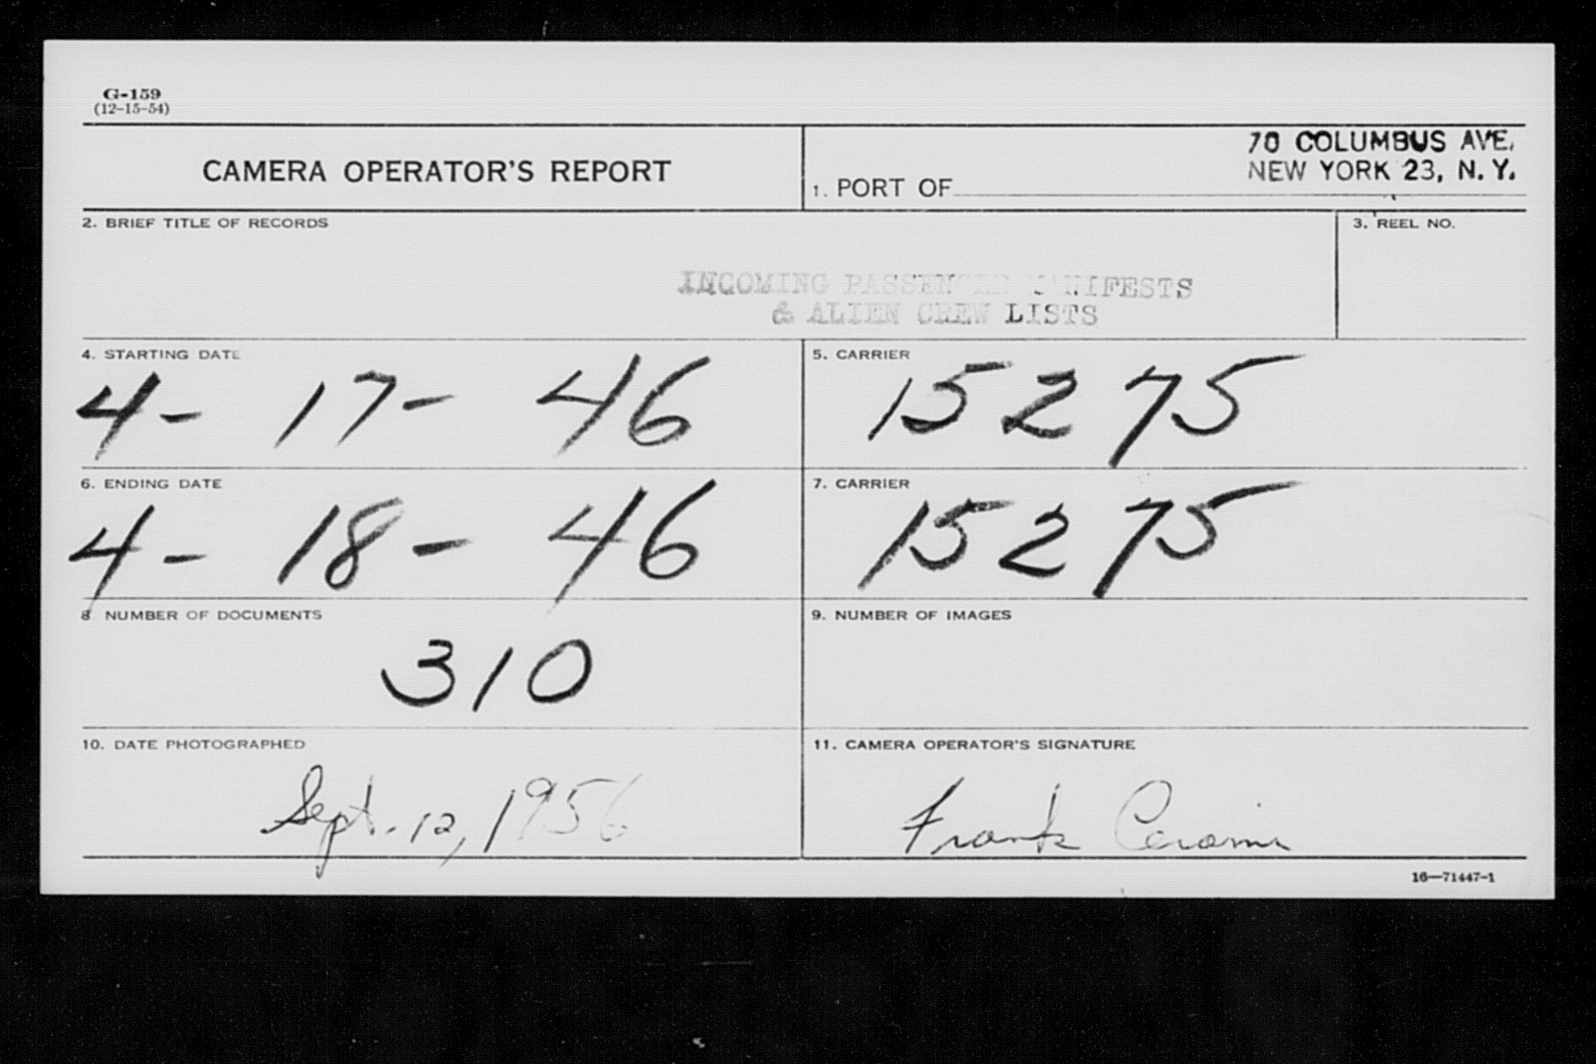 G-159
(12-15-54)
CAMERA OPERATOR'S REPORT
1. PORT OF
70 COLUMBUS AVE.
NEW YORK 23, N. Y.
2. BRIEF TITLE OF RECORDS
3. REEL NO.
INCOMING PASSENGER MANIFESTS
& ALIEN CREW LISTS
4. STARTING DATE
4- 17- 46
5. CARRIER
15275
6. ENDING DATE
4- 18- 46
7. CARRIER
15275
8 NUMBER OF DOCUMENTS
310
9. NUMBER OF IMAGES
10. DATE PHOTOGRAPHED
Sept. 12, 1956
11. CAMERA OPERATOR'S SIGNATURE
Frank
16—71447-1